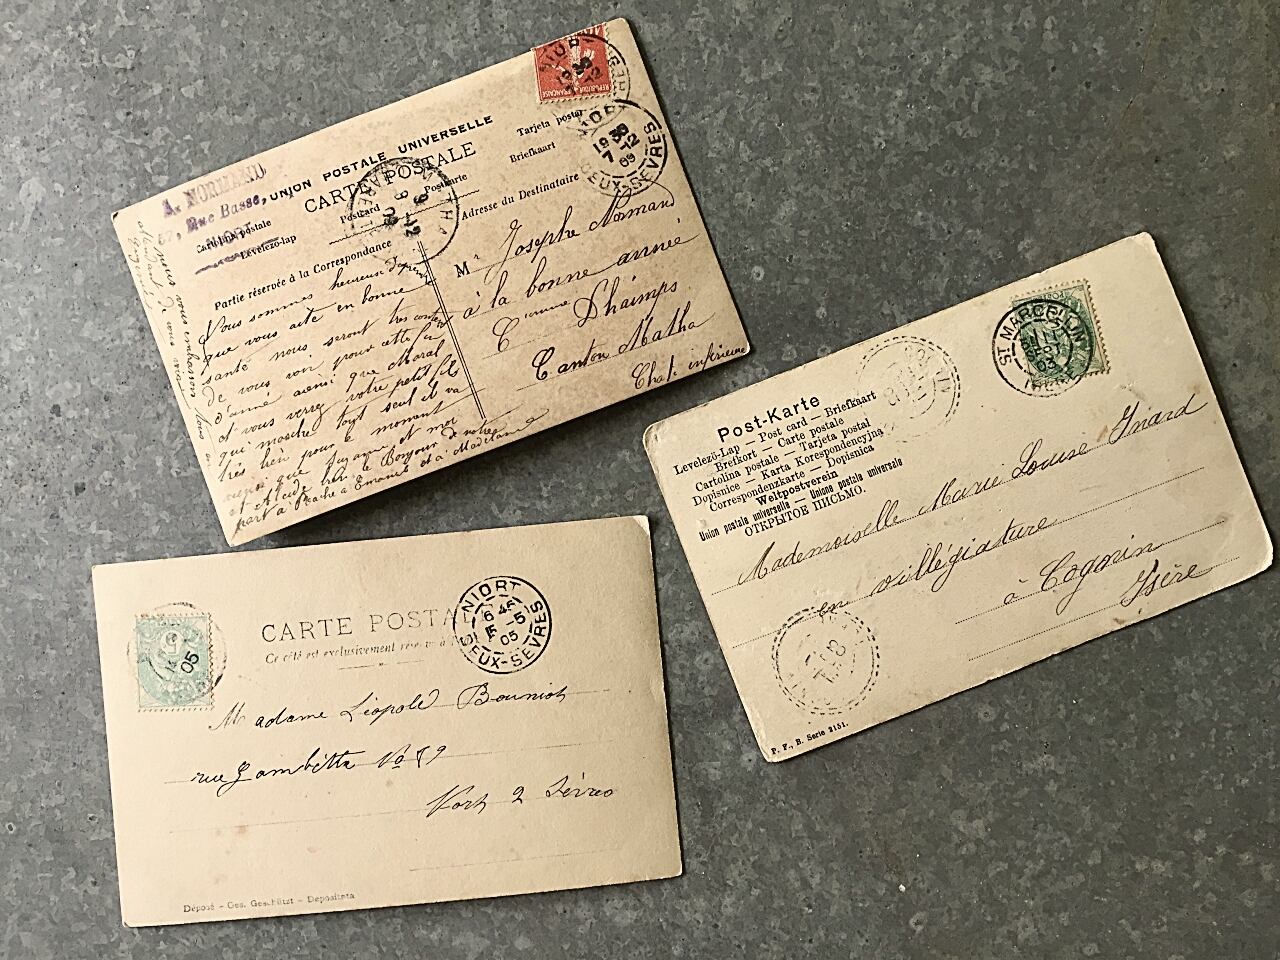 A. NORMAND
Rue Basse,
NIORT
UNION POSTALE UNIVERSELLE
CARTE POSTALE
Tarjeta postal
Briefkaart
Postkarte
Postcard
Cartolina postale
Levelező-lap
Adresse du Destinataire
Partie réservée à la Correspondance
REPUBLIQUE FRANÇAISE
NIORT
19 30
7-12
09
DEUX-SEVRES
MATHA
Nous sommes heureux
que vous aite en bonne
santé nous seront très content
de vous voir pour cette fin
d'année ainsi que Maral
et vous verrez votre petit fils
qui marche tout seul et va
très bien pour le moment
et moi
le Bonjour de notre
part à à Emanuel et à Madelaine
nous vous embrasson
Mr Josephe Normand
à la bonne année
Cne Dhaimps
Canton Matha
Chte inférieure
ST MARCELLIN
ISERE
Post-Karte
Levelező-Lap — Post card — Briefkaart
Brefkort — Carte postale
Cartolina postale — Tarjeta postal
Dopisnice — Karta Korespondencyjna
Correspondenzkarte — Dopisnica
Weltpostverein
Union postale universelle — Unione postale universale
ОТКРЫТОЕ ПИСЬМО.
Mademoiselle Marie Louise Inard
en villégiature
à Cognin
Isère
P. F., B. Serie 2151.
05
CARTE POSTALE
Ce côté est exclusivement réservé à
NIORT
6 45
15 -5
05
DEUX-SEVRES
Madame Léopole Bouniot
rue Gambetta No 79
Niort 2 Sèvres
Déposé - Ges. Geschützt - Depositata